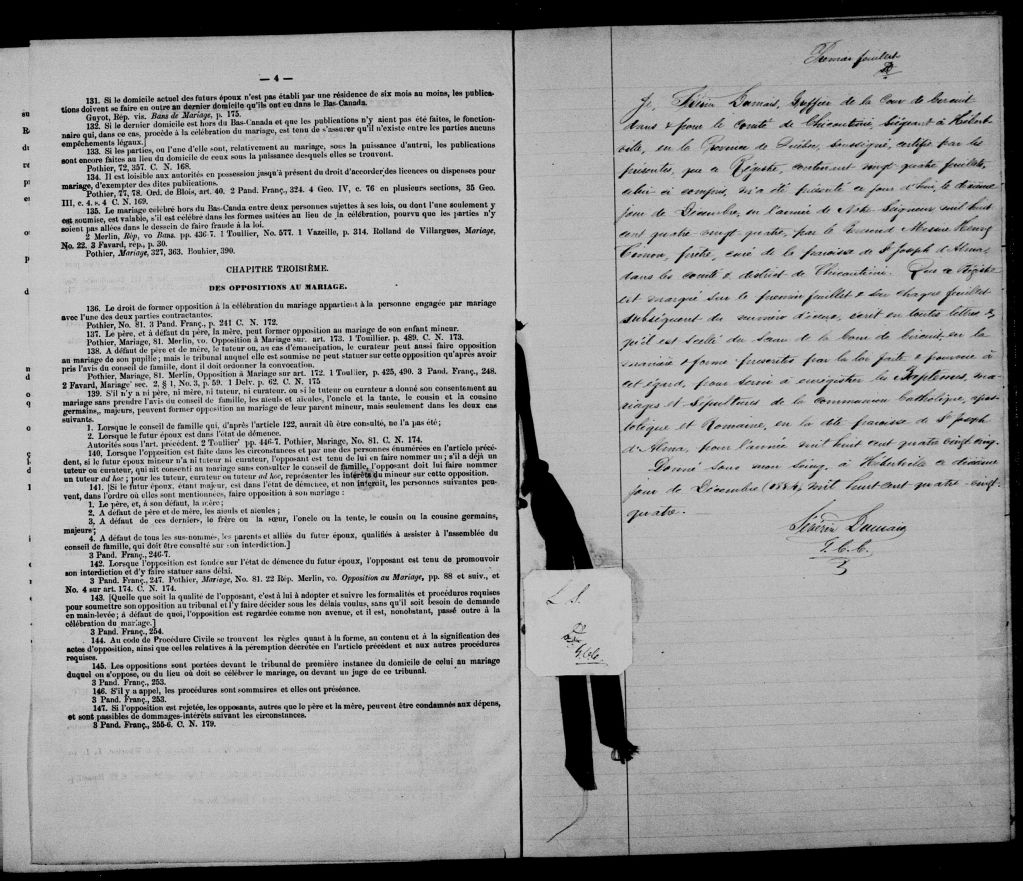 — 4 —
131. Si le domicile actuel des futurs époux n'est pas établi par une résidence de six mois au moins, les publica-
tions doivent se faire en outre au dernier domicile qu'ils ont eu dans le Bas-Canada.
Guyot, Rép. vis. Bans de Mariage, p. 175.
132. Si le dernier domicile est hors du Bas-Canada et que les publications n'y aient pas été faites, le fonction-
naire qui, dans ce cas, procède à la célébration du mariage, est tenu de s'assurer qu'il n'existe entre les parties aucuns
empêchements légaux.]
133. Si les parties, ou l'une d'elle sont, relativement au mariage, sous la puissance d'autrui, les publications
sont encore faites au lieu du domicile de ceux sous la puissance desquels elles se trouvent.
Pothier, 72, 357. C. N. 168.
134. Il est loisible aux autorités en possession jusqu'à présent du droit d'accorder des licences ou dispenses pour
mariage, d'exempter des dites publications.
Pothier, 77, 78. Ord. de Blois, art. 40. 2 Pand. Franç., 324. 4 Geo. IV, c. 76 en plusieurs sections, 35 Geo.
III, c. 4. s. 4 C. N. 169.
135. Le mariage célébré hors du Bas-Canada entre deux personnes sujettes à ses lois, ou dont l'une seulement y
est soumise, est valable, s'il est célébré dans les formes usitées au lieu de la célébration, pourvu que les parties n'y
soient pas allées dans le dessein de faire fraude à la loi.
2 Merlin, Rép, vo Bans. pp. 436-7. 1 Toullier, No. 577. 1 Vazeille, p. 314. Rolland de Villargues, Mariage,
No. 22. 3 Favard, rép., p. 30.
Pothier, Mariage, 327, 363. Bouhier, 390.
CHAPITRE TROISIÈME.
DES OPPOSITIONS AU MARIAGE.
136. Le droit de former opposition à la célébration du mariage appartient à la personne engagée par mariage
avec l'une des deux parties contractantes.
Pothier, No. 81. 3 Pand. Franç., p. 241 C. N. 172.
137. Le père, et à défaut du père, la mère, peut former opposition au mariage de son enfant mineur.
Pothier, Mariage, 81. Merlin, vo. Opposition à Mariage sur. art. 173. 1 Toullier. p. 489. C. N. 173.
138. A défaut de père et de mère, le tuteur ou, au cas d'émancipation, le curateur peut aussi faire opposition
au mariage de son pupille; mais le tribunal auquel elle est soumise ne peut statuer sur cette opposition qu'après avoir
pris l'avis du conseil de famille, dont il doit ordonner la convocation.
Pothier, Mariage, 81. Merlin, Opposition à Mariage sur art. 172. 1 Toullier, p. 425, 490. 3 Pand. Franç., 248.
2 Favard, Mariage sec. 2, § 1, No. 3, p. 59. 1 Delv. p. 62. C. N. 175
139. S'il n'y a ni père, ni mère, ni tuteur, ni curateur, ou si le tuteur ou curateur a donné son consentement au
mariage sans prendre l'avis du conseil de famille, les aïeuls et aïeules, l'oncle et la tante, le cousin et la cousine
germains, majeurs, peuvent former opposition au mariage de leur parent mineur, mais seulement dans les deux cas
suivants.
1. Lorsque le conseil de famille qui, d'après l'article 122, aurait dû être consulté, ne l'a pas été;
2. Lorsque le futur époux est dans l'état de démence.
Autorités sous l'art. précédent. 2 Toullier pp. 446-7. Pothier, Mariage, No. 81. C. N. 174.
140. Lorsque l'opposition est faite dans les circonstances et par une des personnes énumérées en l'article précé-
dent, si le futur époux mineur n'a ni tuteur ni curateur, l'opposant est tenu de lui en faire nommer un; s'il a déjà un
tuteur ou curateur, qui ait consenti au mariage sans consulter le conseil de famille, l'opposant doit lui faire nommer
un tuteur ad hoc; pour les tuteur, curateur ou tuteur ad hoc, représenter les intérêts du mineur sur cette opposition.
141. [Si le futur époux, étant majeur, est dans l'état de démence, et non interdit, les personnes suivantes peu-
vent, dans l'ordre où elles sont mentionnées, faire opposition à son mariage:
1. Le père, et, à son défaut, la mère;
2. A défaut de père et de mère, les aïeuls et aïeules;
3. A défaut de ces derniers, le frère ou la sœur, l'oncle ou la tente, le cousin ou la cousine germains,
majeurs;
4. A défaut de tous les sus-nommés, les parents et alliés du futur époux, qualifiés à assister à l'assemblée du
conseil de famille, qui doit être consulté sur son interdiction.]
3 Pand. Franç., 246-7.
142. Lorsque l'opposition est fondée sur l'état de démence du futur époux, l'opposant est tenu de promouvoir
son interdiction et d'y faire statuer sans délai.
3 Pand. Franç., 247. Pothier, Mariage, No. 81. 22 Rép. Merlin, vo. Opposition au Mariage, pp. 88 et suiv., et
No. 4 sur art. 174. C. N. 174.
143. [Quelle que soit la qualité de l'opposant, c'est à lui à adopter et suivre les formalités et procédures requises
pour soumettre son opposition au tribunal et l'y faire décider sous les délais voulus, sans qu'il soit besoin de demande
en main-levée; à défaut de quoi, l'opposition est regardée comme non avenue, et il est, nonobstant, passé outre à la
célébration du mariage.]
3 Pand. Franç., 254.
144. Au code de Procédure Civile se trouvent les règles quant à la forme, au contenu et à la signification des
actes d'opposition, ainsi que celles relatives à la péremption décrétée en l'article précédent et aux autres procédures
requises.
145. Les oppositions sont portées devant le tribunal de première instance du domicile de celui au mariage
duquel on s'oppose, ou du lieu où doit se célébrer le mariage, ou devant un juge de ce tribunal.
3 Pand. Franç., 253.
146. S'il y a appel, les procédures sont sommaires et elles ont préséance.
3 Pand. Franç., 253.
147. Si l'opposition est rejetée, les opposants, autres que le père et la mère, peuvent être condamnés aux dépens,
et sont passibles de dommages-intérêts suivant les circonstances.
3 Pand. Franç., 255-6. C. N. 179.
L. S.
Premier feuillet
Je, Séverin Dumais, Greffier de la Cour de Circuit
dans & pour le comté de Chicoutimi, siégeant à Hébert-
ville, en la Province de Québec, soussigné, certifie par les
présentes, que ce Régistre, contenant vingt quatre feuillets,
celui ci compris, m'a été présenté ce jour d'hui, le dixième
jour de Décembre, en l'année de Notre Seigneur mil huit
cent quatre-vingt quatre, par le Révérend Messire Henry
Cimon, prêtre, curé de la paroisse de St Joseph d'Alma,
dans les comté & district de Chicoutimi. Que ce Régistre
est marqué sur le premier feuillet & sur chaque feuillet
subséquent du numéro d'iceux, écrit en toutes lettres &
qu'il est scellé du sceau de la Cour de Circuit, en la
manière & forme prescrites par la loi faite & pourvue à
cet égard, pour servir à enregistrer les Baptêmes, ma-
riages et Sépultures de la Communion Catholique, apos-
tolique et Romaine, en la dite paroisse de St Joseph
d'Alma, pour l'année mil huit cent quatre vingt cinq.
Donné sous mon seing, à Hébertville ce dixième
jour de Décembre (1884) Mil huit cent quatre-vingt-
quatre.
Séverin Dumais
G. C. C.